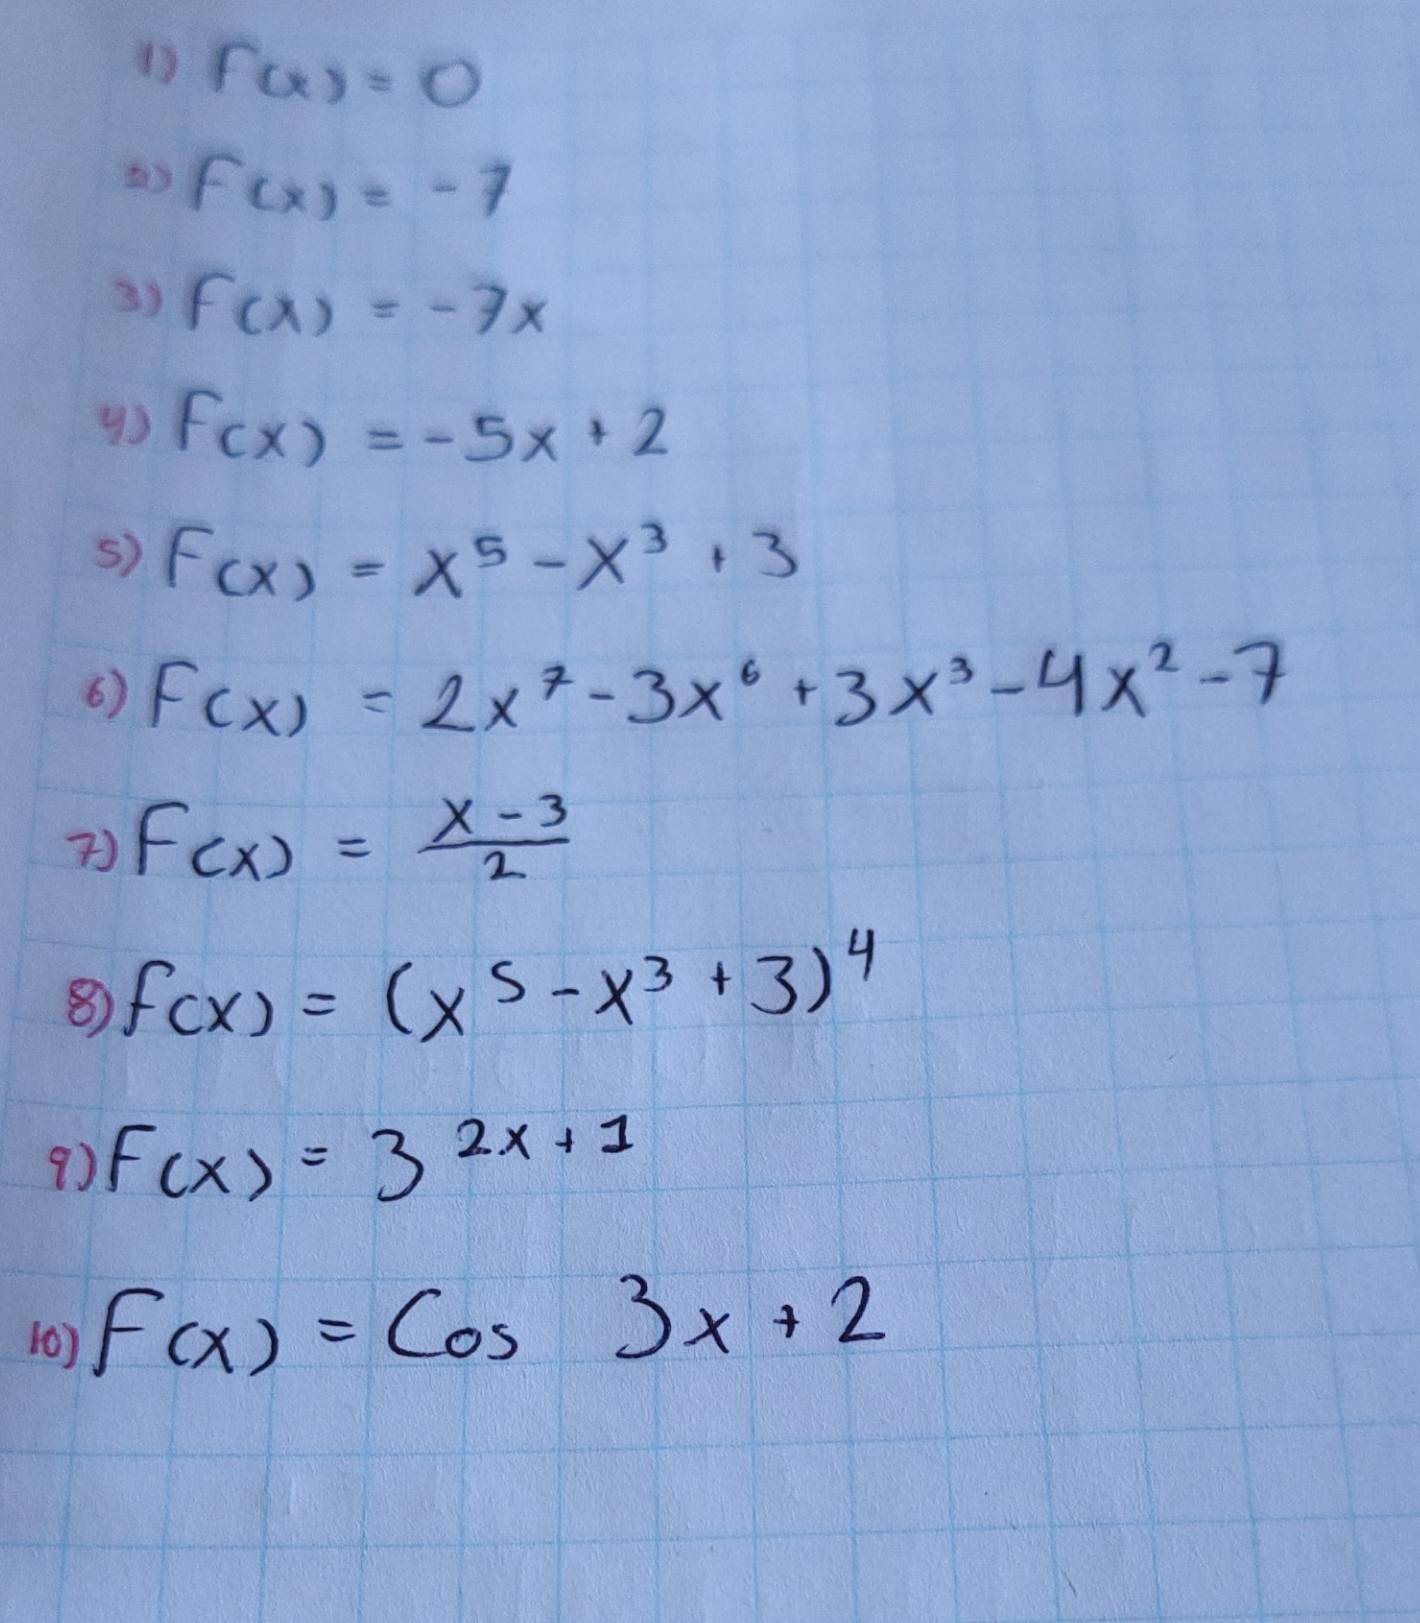 1) F(x) = 0
2) F(x) = -7
3) F(x) = -7x
4) F(x) = -5x + 2
5) F(x) = x⁵ - x³ + 3
6) F(x) = 2x⁷ - 3x⁶ + 3x³ - 4x² - 7
7) F(x) = (x - 3)/2
8) f(x) = (x⁵ - x³ + 3)⁴
9) F(x) = 3^(2x + 1)
10) F(x) = Cos 3x + 2